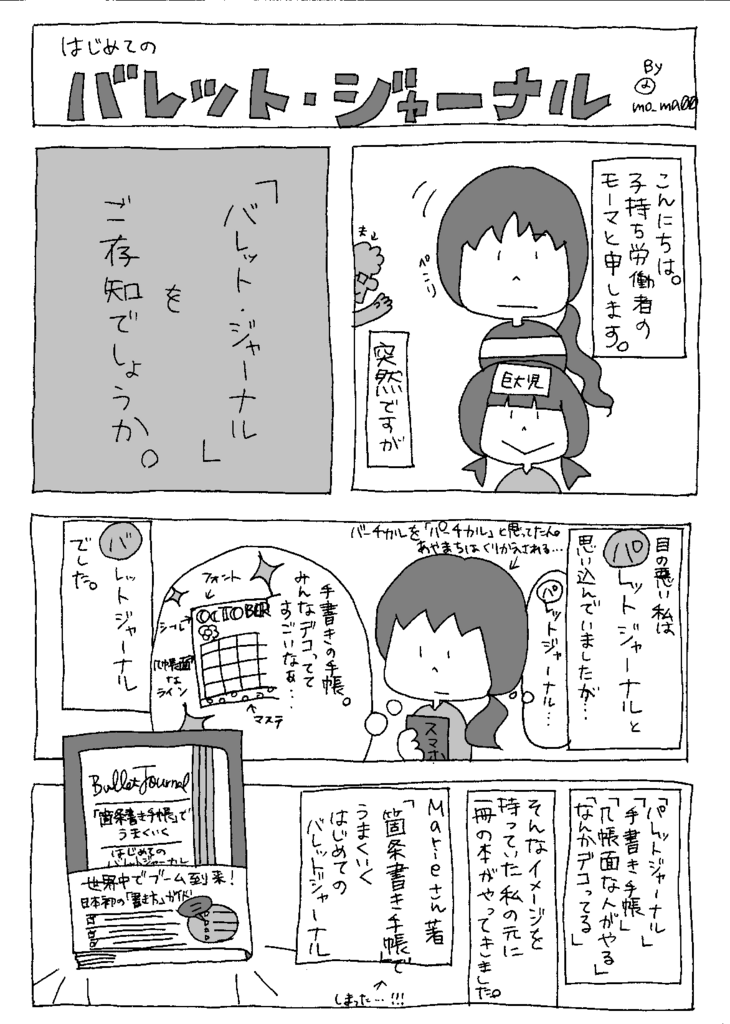 はじめての
バレット・ジャーナル
By
mo_ma00
こんにちは。
子持ち労働者の
モーマと申します。
ぺこり
夫
巨大児
突然ですが
「バレット・ジャーナル」
を
ご存知でしょうか。
目の悪い私は
パレットジャーナルと
思い込んでいましたが…
バーチカルを「パーチカル」と思ってたん。
あやまちはくりかえされる…
パレットジャーナル…
スマホ
手書きの手帳。
みんなデコってて
すごいなぁ…
フォント
OCTOBER
シール
几帳面
な
ライン
マステ
バレットジャーナル
でした。
「パレットジャーナル」
「手書き手帳」
「几帳面な人がやる」
「なんかデコってる」
そんなイメージを
持っていた私の元に
一冊の本がやってきました。
Marieさん著
「箇条書き手帳」で
うまくいく
はじめての
バレットジャーナル
しまった…!!!
Bullet Journal
「箇条書き手帳」で
うまくいく
はじめての
バレットジャーナル
世界中でブーム到来!
日本初の「書き方」ガイド